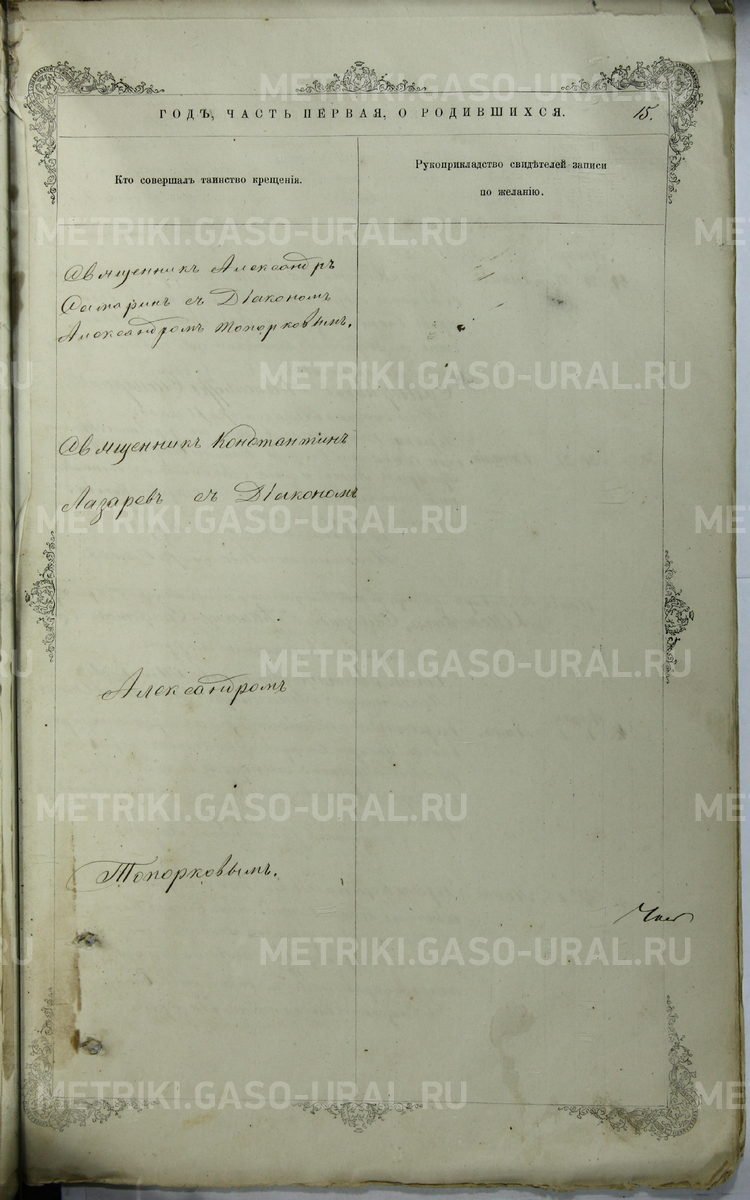 ГОДЪ, ЧАСТЬ ПЕРВАЯ, О РОДИВШИХСЯ. 15.
Кто совершалъ таинство крещенія.
Рукоприкладство свидѣтелей записи
по желанію.
Священникъ Александръ
Самаринъ съ Діакономъ
Александромъ Топорковымъ.
Священникъ Константинъ
Лазаревъ съ Діакономъ
Александромъ
Топорковымъ.
METRIKI.GASO-URAL.RU
METRIKI.GASO-URAL.RU
METRIKI.GASO-URAL.RU
METRIKI.GASO-URAL.RU
METRIKI.GASO-URAL.RU
METRIKI.GASO-URAL.RU
METRIKI.GASO-URAL.RU
METRIKI.GASO-URAL.RU